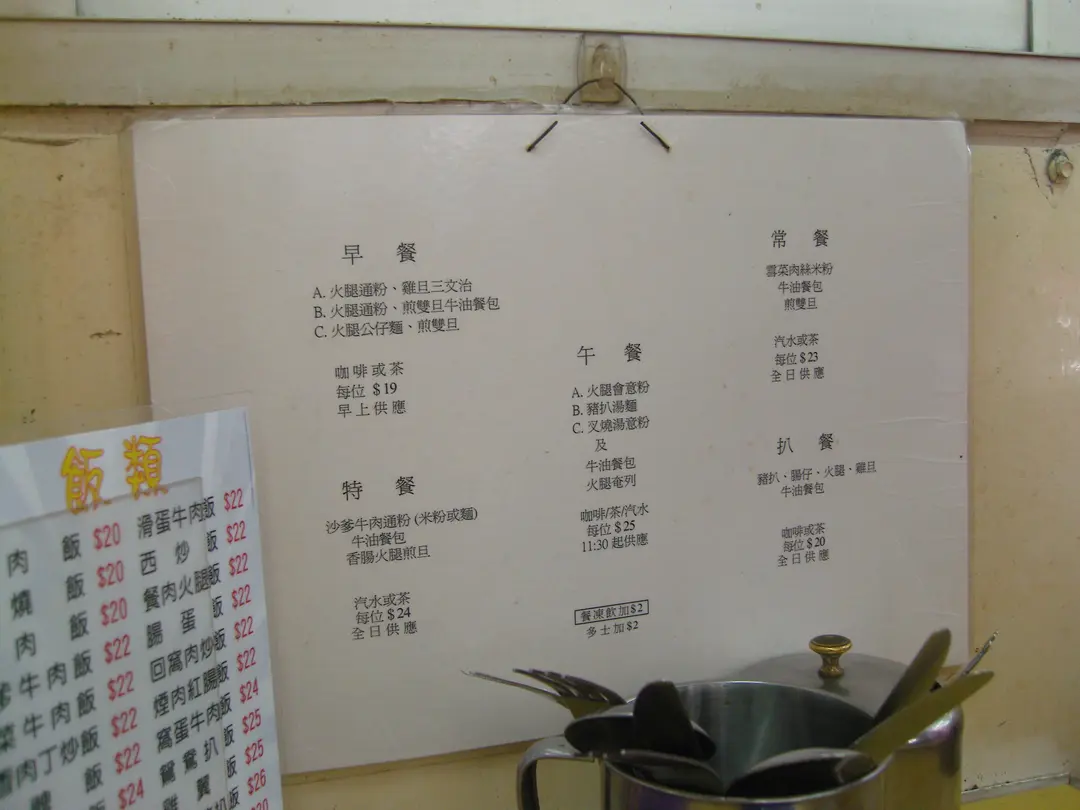 早 餐
A. 火腿通粉、雞旦三文治
B. 火腿通粉、煎雙旦牛油餐包
C. 火腿公仔麵、煎雙旦
咖啡或茶
每位 $19
早上供應
特 餐
沙爹牛肉通粉 (米粉或麵)
牛油餐包
香腸火腿煎旦
汽水或茶
每位 $24
全日供應
午 餐
A. 火腿會意粉
B. 豬扒湯麵
C. 叉燒湯意粉
及
牛油餐包
火腿奄列
咖啡/茶/汽水
每位 $25
11:30 起供應
餐凍飲加$2
多士加$2
常 餐
雪菜肉絲米粉
牛油餐包
煎雙旦
汽水或茶
每位 $23
全日供應
扒 餐
豬扒、腸仔、火腿、雞旦
牛油餐包
咖啡或茶
每位 $20
全日供應
飯類
肉 飯 $20
燒 飯 $20
肉 飯 $20
牛肉飯 $22
菜牛肉飯 $22
肉丁炒飯 $22
飯 $22
$24
滑蛋牛肉飯 $22
西炒飯 $22
餐肉火腿飯 $22
腸蛋飯 $22
回窩肉炒飯 $22
煙肉紅腸飯 $22
窩蛋牛肉飯 $24
鴛鴦扒飯 $25
雞翼飯 $25
$26